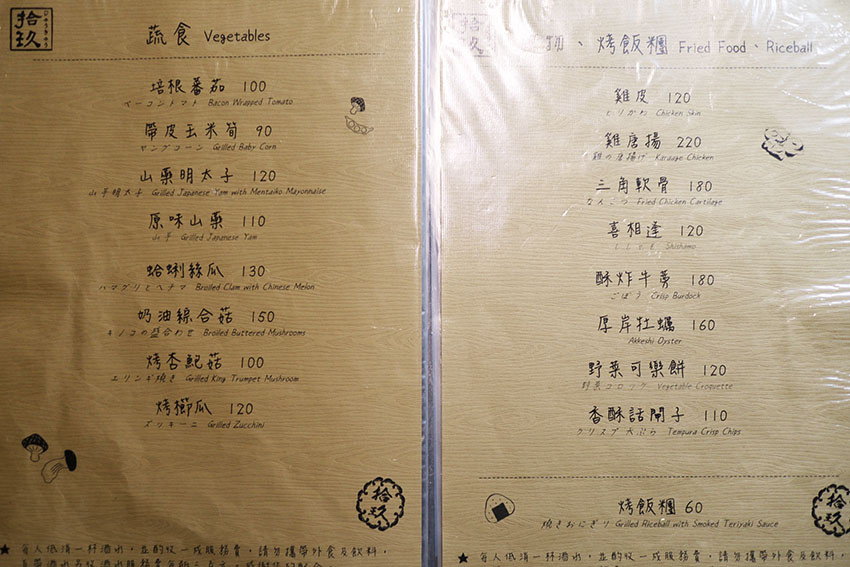 拾玖
じゅうきゅう
蔬食 Vegetables
培根蕃茄 100
ベーコントマト Bacon Wrapped Tomato
帶皮玉米筍 90
ヤングコーン Grilled Baby Corn
山藥明太子 120
山芋明太子 Grilled Japanese Yam with Mentaiko Mayonnaise
原味山藥 110
山芋 Grilled Japanese Yam
蛤蜊絲瓜 130
ハマグリとヘチマ Broiled Clam with Chinese Melon
奶油綜合菇 150
キノコの盛合わせ Broiled Buttered Mushrooms
烤杏鮑菇 100
エリンギ焼き Grilled King Trumpet Mushroom
烤櫛瓜 120
ズッキーニ Grilled Zucchini
拾玖
★ 每人低消一杯酒水，並酌收一成服務費，請勿攜帶外食及飲料，
拾玖
、烤飯糰 Fried Food、Riceball
雞皮 120
とりかわ Chicken Skin
雞唐揚 220
鶏の唐揚げ Karaage Chicken
三角軟骨 180
なんこつ Fried Chicken Cartilage
喜相逢 120
ししゃも Shishamo
酥炸牛蒡 180
ごぼう Crisp Burdock
厚岸牡蠣 160
Akkeshi Oyster
野菜可樂餅 120
野菜コロッケ Vegetable Croquette
香酥話閘子 110
クリスプ天ぷら Tempura Crisp Chips
烤飯糰 60
焼きおにぎり Grilled Riceball with Smoked Teriyaki Sauce
拾玖
★ 每人低消一杯酒水，並酌收一成服務費，請勿攜帶外食及飲料，